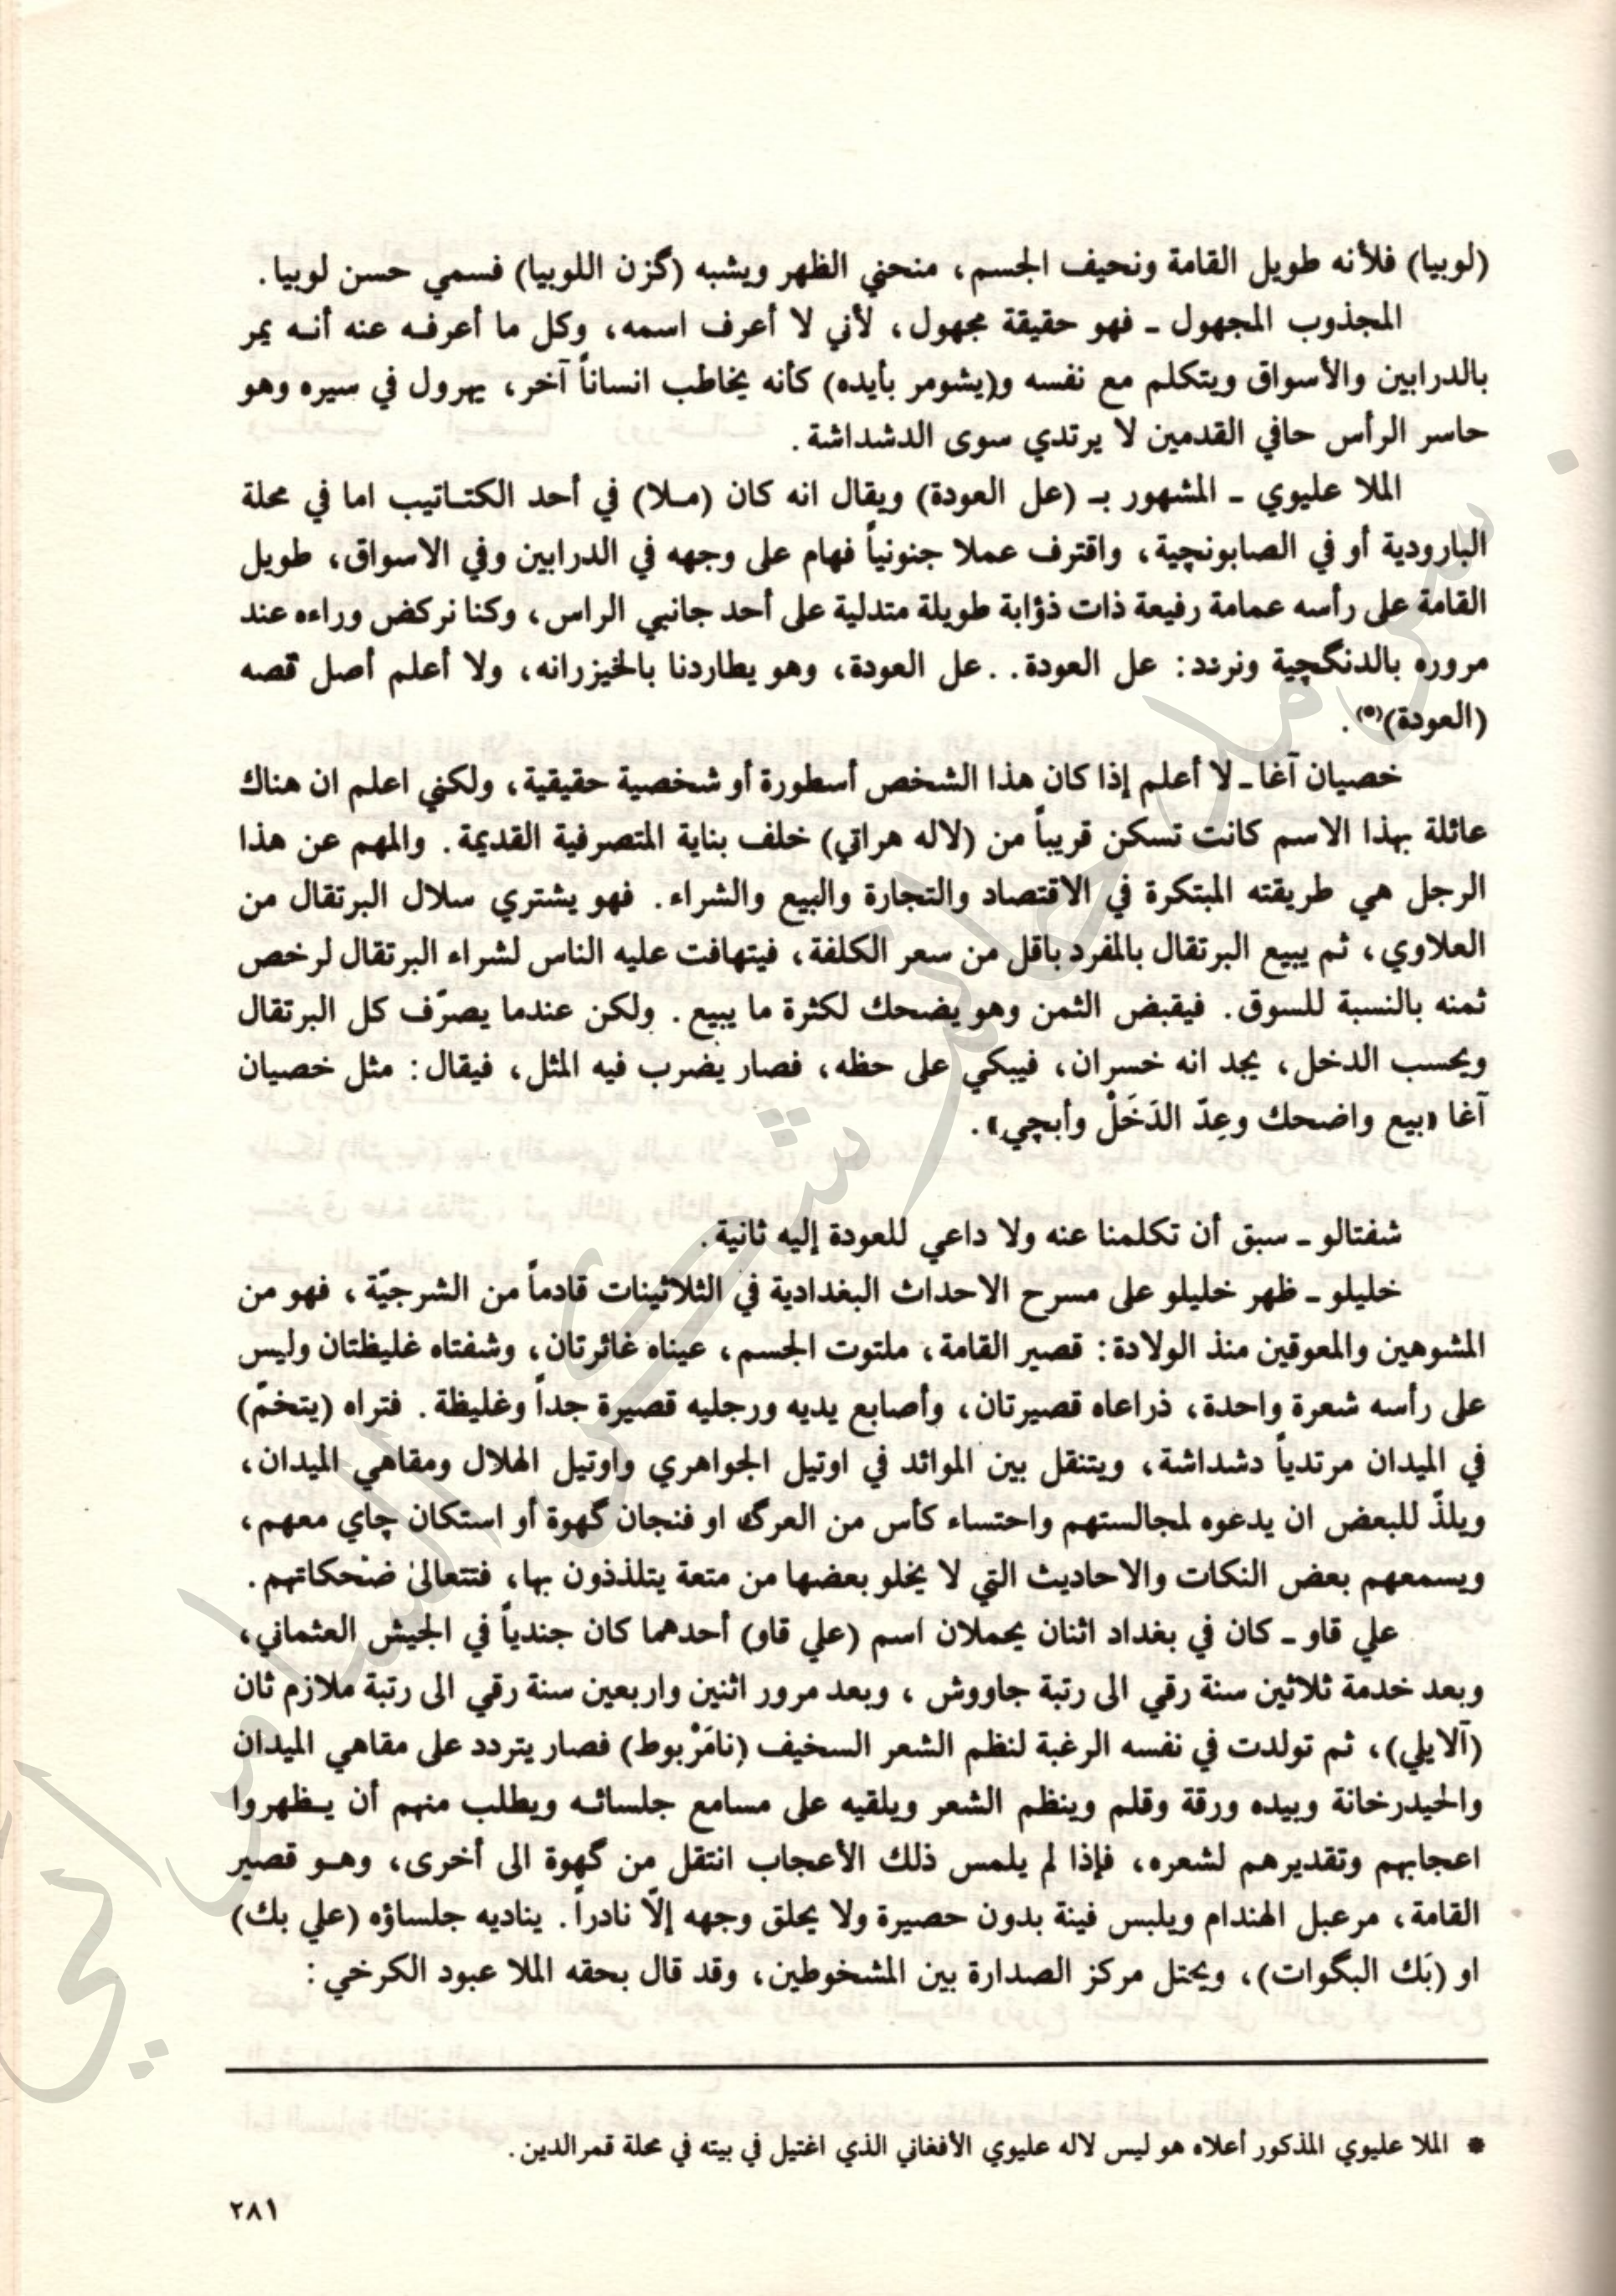 (لوبيا) فلأنه طويل القامة ونحيف الجسم، منحني الظهر ويشبه (گزن اللوبيا) فسمي حسن لوبيا.
المجذوب المجهول ـ فهو حقيقة مجهول، لأني لا أعرف اسمه، وكل ما أعرفه عنه أنه يمر
بالدرابين والأسواق ويتكلم مع نفسه و(يشومر بأيده) كأنه يخاطب انساناً آخر، يهرول في سيره وهو
حاسر الرأس حافي القدمين لا يرتدي سوى الدشداشة.
الملا عليوي ـ المشهور بـ (عل العودة) ويقال انه كان (ملا) في أحد الكتاتيب اما في محلة
البارودية أو في الصابونچية، واقترف عملا جنونياً فهام على وجهه في الدرابين وفي الاسواق، طويل
القامة على رأسه عمامة رفيعة ذات ذؤابة طويلة متدلية على أحد جانبي الراس، وكنا نركض وراءه عند
مروره بالدنگچية ونردد: عل العودة.. عل العودة، وهو يطاردنا بالخيزرانه، ولا أعلم أصل قصه
(العودة)(*).
خصيان آغا ـ لا أعلم إذا كان هذا الشخص أسطورة أو شخصية حقيقية، ولكني اعلم ان هناك
عائلة بهذا الاسم كانت تسكن قريباً من (لاله هراتي) خلف بناية المتصرفية القديمة. والمهم عن هذا
الرجل هي طريقته المبتكرة في الاقتصاد والتجارة والبيع والشراء. فهو يشتري سلال البرتقال من
العلاوي، ثم يبيع البرتقال بالمفرد باقل من سعر الكلفة، فيتهافت عليه الناس لشراء البرتقال لرخص
ثمنه بالنسبة للسوق. فيقبض الثمن وهو يضحك لكثرة ما يبيع. ولكن عندما يصرّف كل البرتقال
ويحسب الدخل، يجد انه خسران، فيبكي على حظه، فصار يضرب فيه المثل، فيقال: مثل خصيان
آغا «بيع واضحك وعِدّ الدَخَلْ وأبچي».
شفتالو ـ سبق أن تكلمنا عنه ولا داعي للعودة إليه ثانية.
خليلو ـ ظهر خليلو على مسرح الاحداث البغدادية في الثلاثينات قادماً من الشرجيّة، فهو من
المشوهين والمعوقين منذ الولادة: قصير القامة، ملتوت الجسم، عيناه غائرتان، وشفتاه غليظتان وليس
على رأسه شعرة واحدة، ذراعاه قصيرتان، وأصابع يديه ورجليه قصيرة جداً وغليظة. فتراه (يتخمّ)
في الميدان مرتدياً دشداشة، ويتنقل بين الموائد في اوتيل الجواهري واوتيل الهلال ومقاهي الميدان،
ويلذّ للبعض ان يدعوه لمجالستهم واحتساء كأس من العرگ او فنجان گهوة أو استكان چاي معهم،
ويسمعهم بعض النكات والاحاديث التي لا يخلو بعضها من متعة يتلذذون بها، فتتعالى ضحكاتهم.
علي قاو ـ كان في بغداد اثنان يحملان اسم (علي قاو) أحدهما كان جندياً في الجيش العثماني،
وبعد خدمة ثلاثين سنة رقي الى رتبة جاووش، وبعد مرور اثنين واربعين سنة رقي الى رتبة ملازم ثان
(آلايلي)، ثم تولدت في نفسه الرغبة لنظم الشعر السخيف (نامَرْبوط) فصار يتردد على مقاهي الميدان
والحيدرخانة وبيده ورقة وقلم وينظم الشعر ويلقيه على مسامع جلسائه ويطلب منهم أن يظهروا
اعجابهم وتقديرهم لشعره، فإذا لم يلمس ذلك الأعجاب انتقل من گهوة الى أخرى، وهو قصير
القامة، مرعبل الهندام ويلبس فينة بدون حصيرة ولا يحلق وجهه إلّا نادراً. يناديه جلساؤه (علي بك)
او (بَك البگوات)، ويحتل مركز الصدارة بين المشخوطين، وقد قال بحقه الملا عبود الكرخي:
* الملا عليوي المذكور أعلاه هو ليس لاله عليوي الأفغاني الذي اغتيل في بيته في محلة قمرالدين.
٢٨١